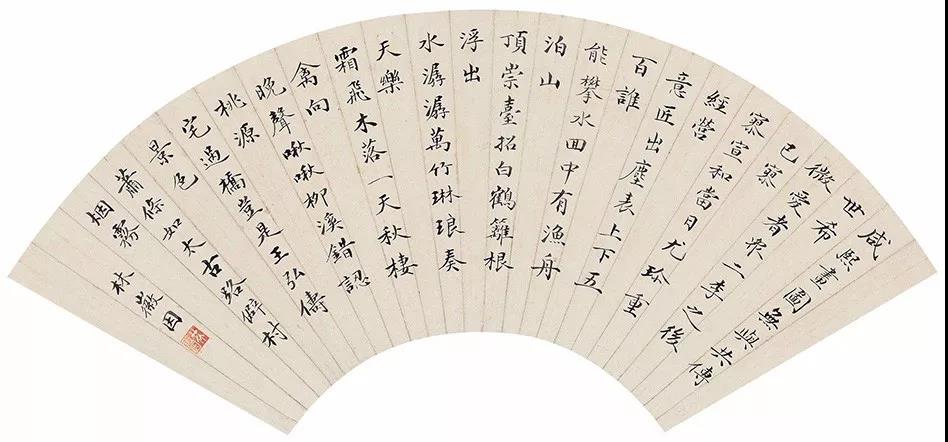 咸熙畫圖無與共傳
世希
微愛者眾二李之後
已寡
寡宣和當日尤珍重
經營
意匠出塵表上下五
百誰
能攀水囬中有漁舟
泊山
頂崇臺招白鶴籬根
浮出
水潺潺萬竹琳琅奏
天樂
霜飛木落一天秋棲
禽向
晚聲啾啾柳溪錯認
桃源
宅過橋豈是王弘儔
景色
蕭條如太古路僻村
烟霧
林徽因